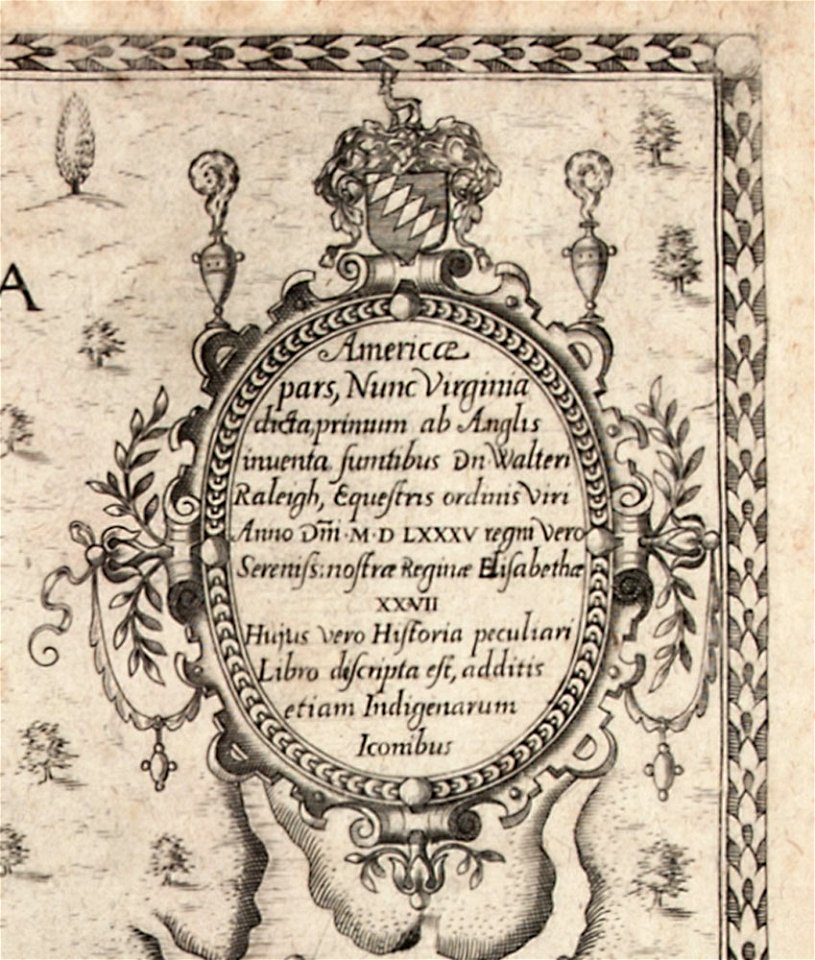 A
Americæ
pars, Nunc Virginia
dicta, primum ab Anglis
inuenta ſumtibus Dn Walteri
Raleigh, Equeſtris ordinis Viri
Anno Dñi · M · D LXXXV regni Vero
Sereniſs: noſtræ Reginæ Eliſabethæ
XXVII
Hujus vero Hiſtoria peculiari
Libro deſcripta eſt, additis
etiam Indigenarum
Iconibus